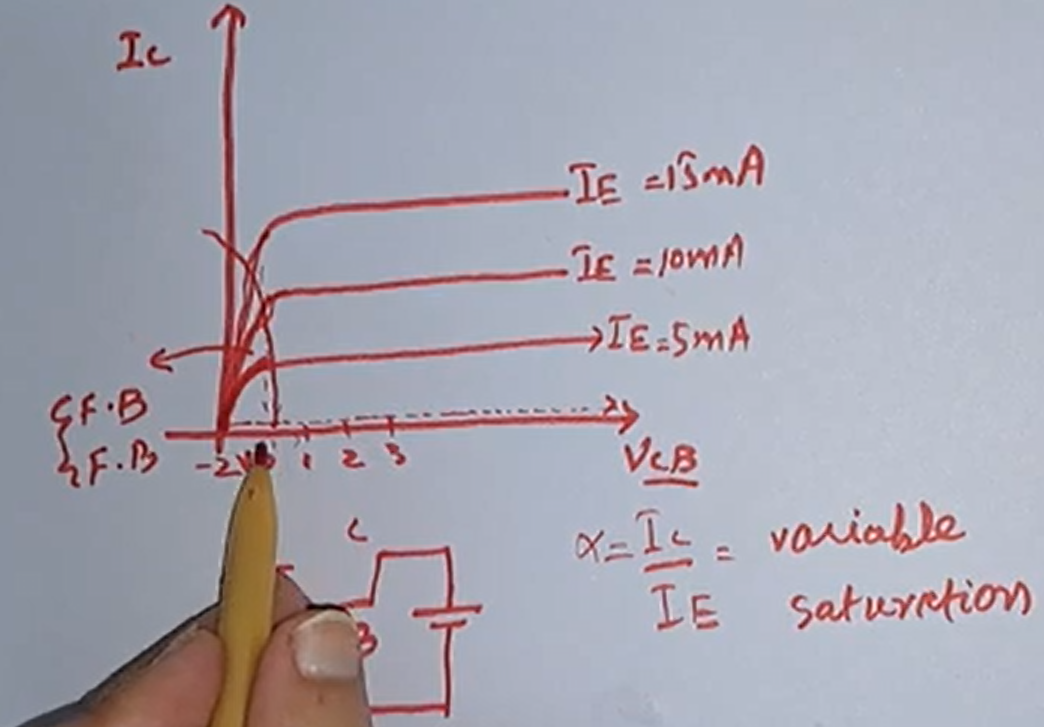 Ic
IE = 15mA
IE = 10mA
IE = 5mA
F.B
F.B
-2
1 2 3
VCB
α = Ic / IE = variable
saturction
C
B